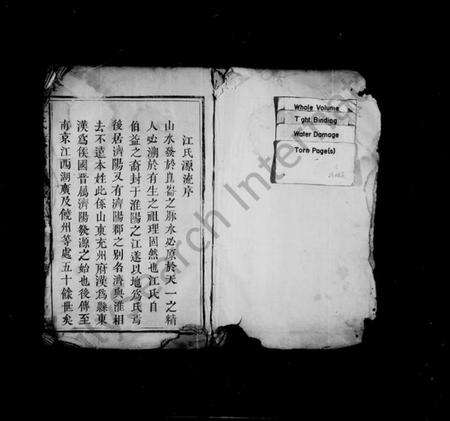 江氏源流序
山水發於崑崙之脉水必原於天一之精
人必溯於有生之祖理固然也江氏自
伯益之裔封于淮陽之江遂以地為氏焉
後居濟陽又有濟陽郡之別名濟與淮相
去不遠本姓此係山東兗州府漢為縣東
漢為侯國晉屬濟陽發源之始也後傳至
南京江西湖廣及饒州等處五十餘世矣
Whole Volume
Tight Binding
Water Damage
Torn Page(s)